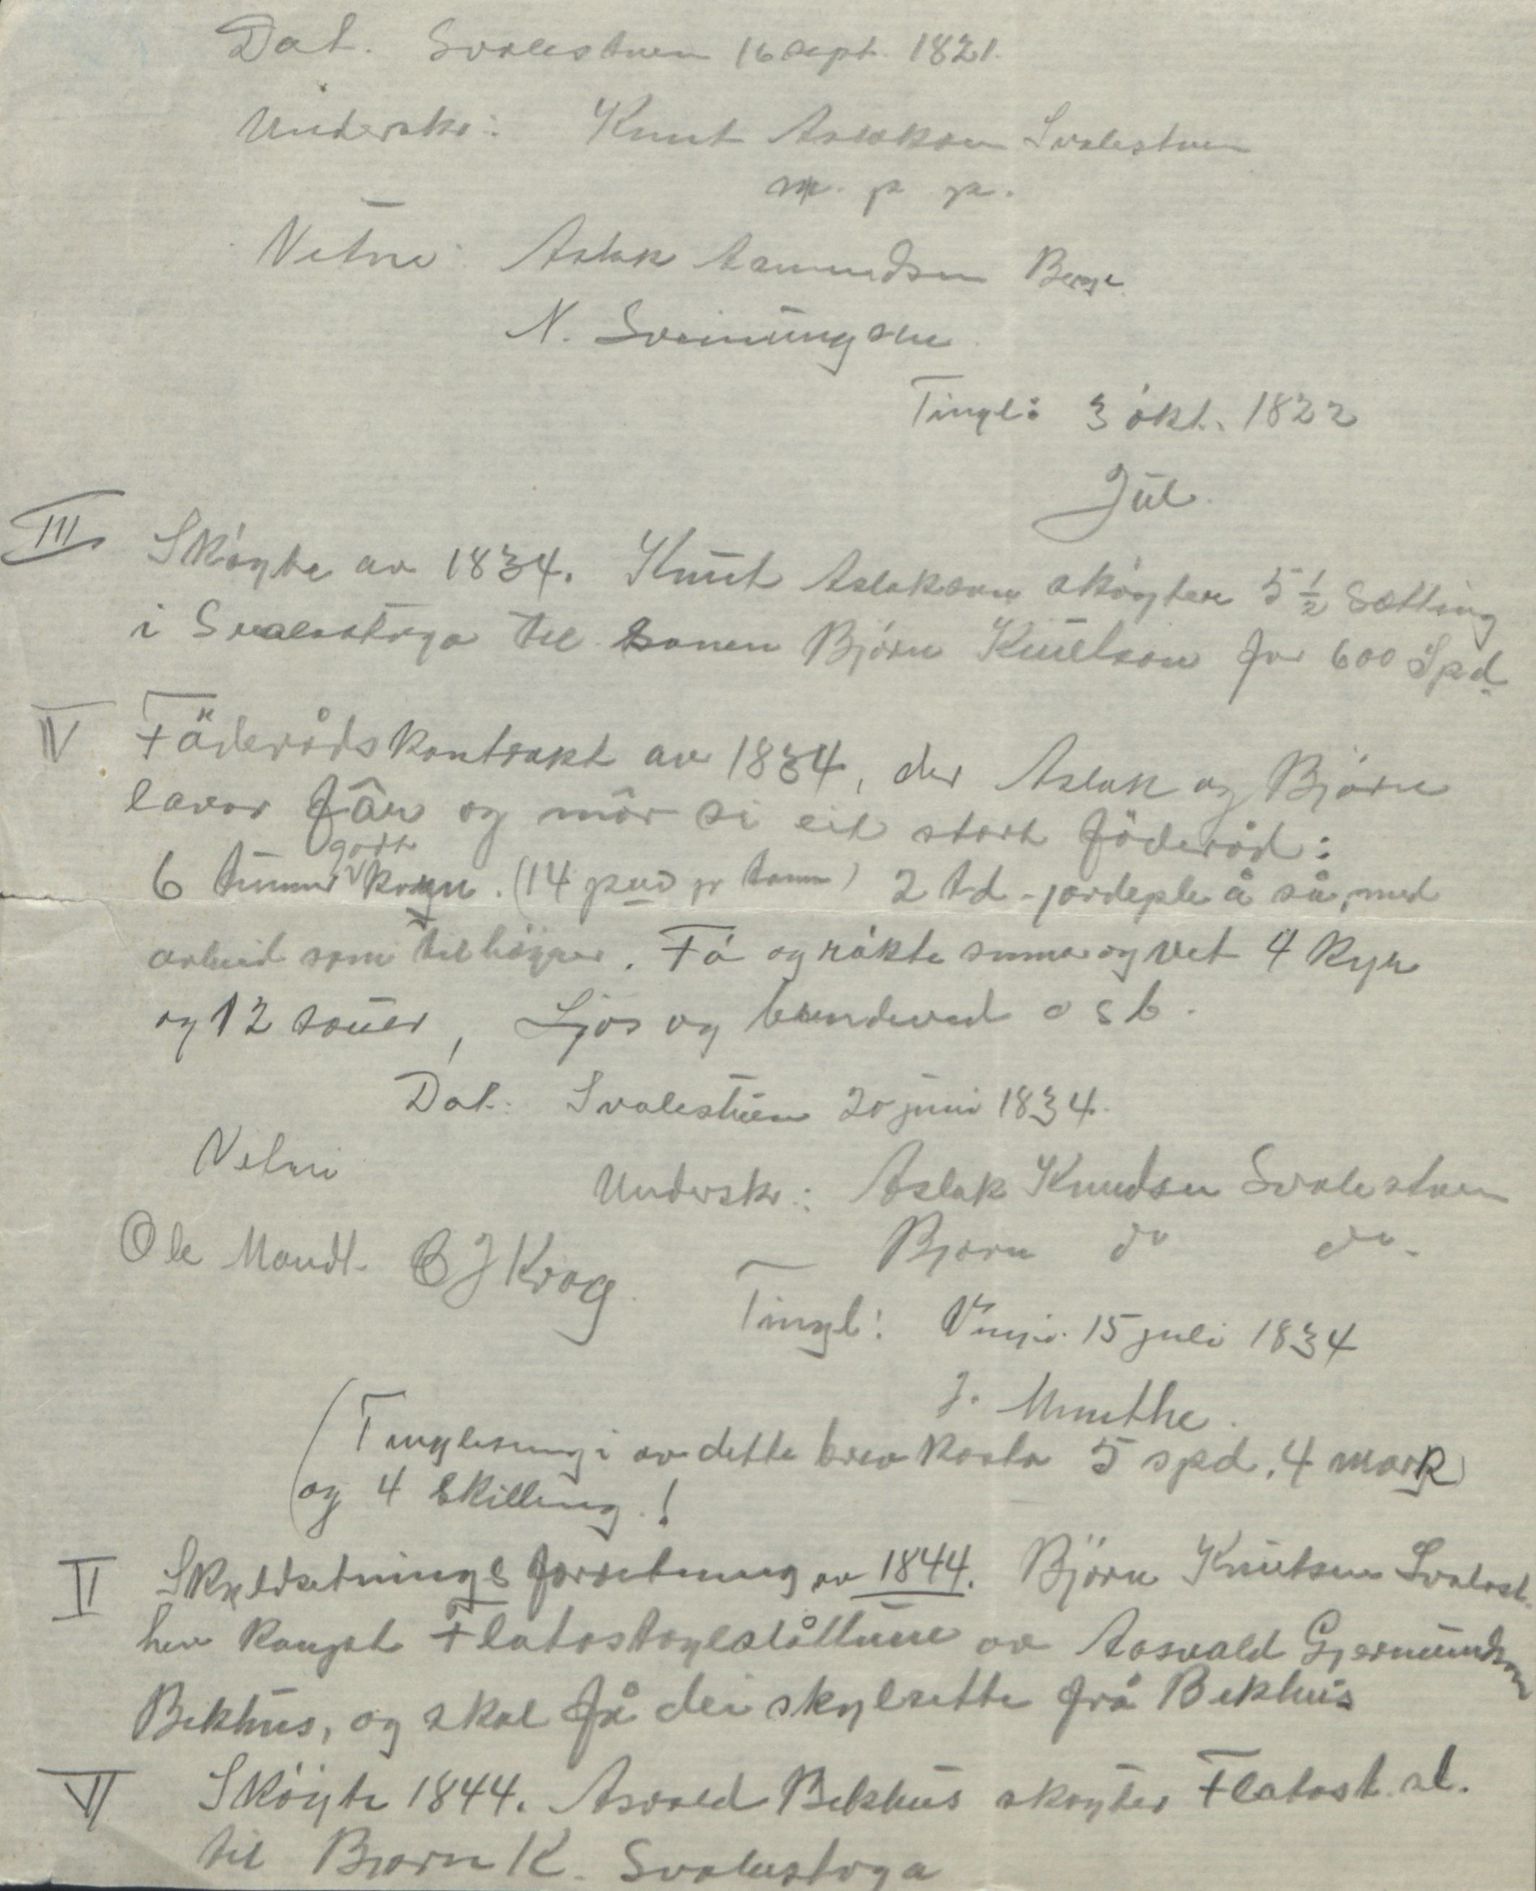 Dat. Svalestuen 16 sept. 1821.
Underskr: Knut Aslakson Svalestuen
m. p. p.
Vitne: Aslak Aamundsen Berge
N. Sveinungsen
Tingl: 3 okt. 1822
Jul.
III Skøyte av 1834. Knut Aslakson skøyter 5 1/2 Sætting
i Svalastoga til sonen Bjørn Knutson for 600 Spd.
IV Föderådskontrakt av 1834, der Aslak og Bjørn
lovar får og mor si eit stort föderåd:
6 tunnur gort korn. (14 pund pr tunn) 2 td. jordeple å så, med
arbeid som tilhøyrer. Fó og røkte sumar og vet 4 kyr
og 12 sauer, Ljos og brendeved o s b.
Dat. Svalestuen 20 juni 1834.
Vitni
Underskr.: Aslak Knudsen Svalestuen
Ole Mandt. C J Krog. Bjørn do do.
Tingl: Vinje. 15 juli 1834
J. Munthe.
(Tinglesingi av dette brev kosta 5 spd. 4 mark
og 4 skilling!)
V Skyldsetnings forretning av 1844. Björn Knutsen Svalast.
hev kaupt Flatastoylslåttune av Aasvald Gjermundson
Bekhus, og skal få dei skylsette frå Bekhus
VI Skøyte 1844. Asvald Bekhus skøyter Flatast. sl.
til Bjørn K. Svalastoga